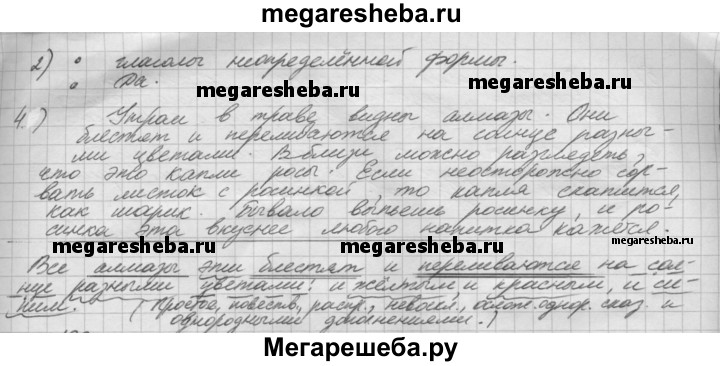 megaresheba.ru
2) • глаголы неопределённой формы.
• Да.
megaresheba.ru megaresheba.ru
4.) Утрам в траве видны алмазы. Они
блестят и переливаются на солнце разны-
ми цветами. Вблизи можно разглядеть,
что это капли росы. Если неосторожно сор-
вать листок с росинкой, то капля скатится,
как шарик. Бывало выпьешь росинку, и ро-
синка эта вкуснее любого напитка кажется.
megaresheba.ru megaresheba.ru megaresheba.ru
Все алмазы эти блестят и переливаются на сол-
нце разными цветами: и жёлтым, и красным, и си-
ним. (Простое, повеств., распр., невоскл., ослож. однор. сказ. и
однородными дополнениями.)
Мегарешеба.ру